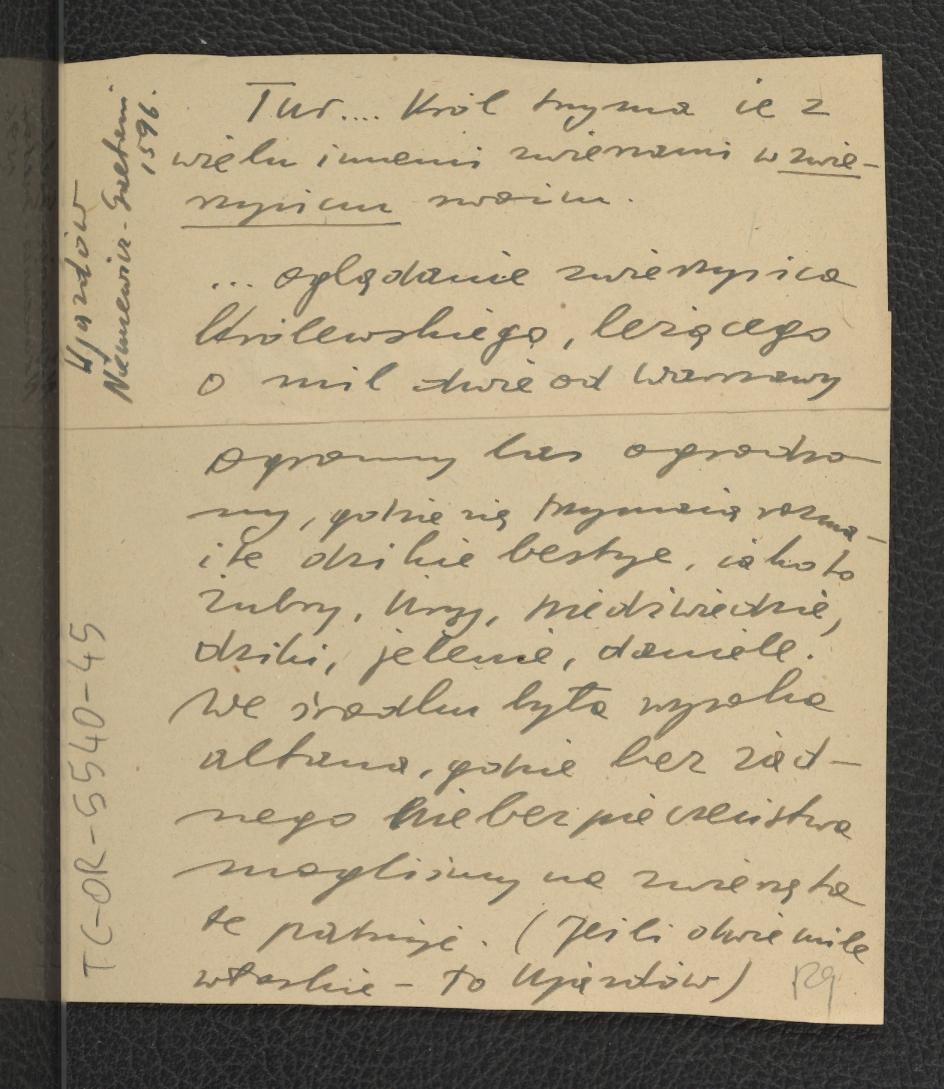 Ujazdów
Niemcewicz - Gaetani
1596.
Tur.... Król trzyma ie z
wielu innemi zwierzami w zwie-
rzyńcu swoim.
... oglądanie zwierzyńca
Królewskiego, leżącego
o mil dwie od Warszawy
Ogromny las ogrodzo-
ny, gdzie się trzymaią rozma-
ite dzikie bestye, iako to
żubry, Ury, niedźwiedzie,
dziki, jelenie, daniele.
We środku była wysoka
altana, gdzie bez żad-
nego niebezpieczeństwa
mogliśmy na zwierzęta
te patrzyć. (Jeśli dwie mile
włoskie - to Ujazdów)
129
TC-OR-5540-45